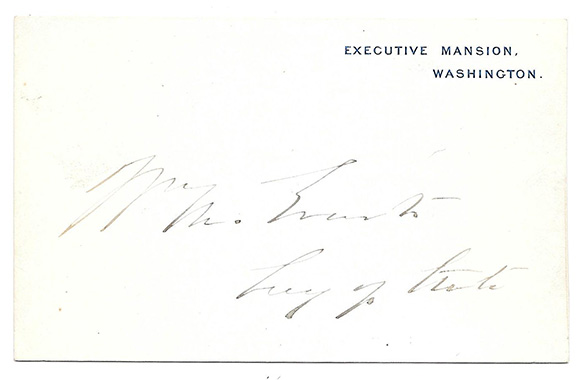 EXECUTIVE MANSION,
WASHINGTON.
Wm M. Evarts
Secy of State